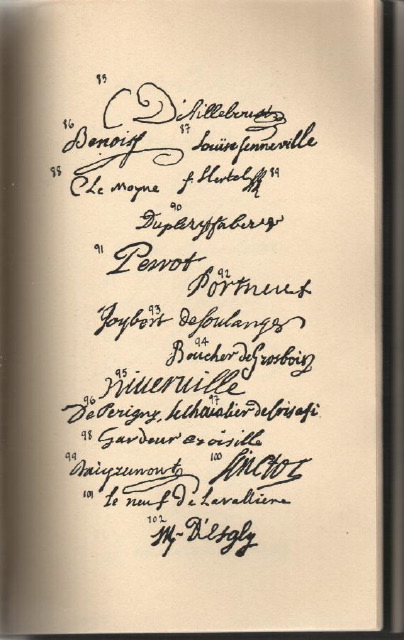 85
D'Ailleboust
86 Benoist 87 Louise senneville
88 C Le moyne f. Hertel 89
90
Duplessy faber
91 Perrot
92 Portneuf
93
Joybert desoulanges
94
Boucher de Grosbois
95
niverville
96 97
De Perigny, le chevalier de
98 Gardeur croisille
99 100
101 le neuf De Lavalliere
102
M. D'Esgly